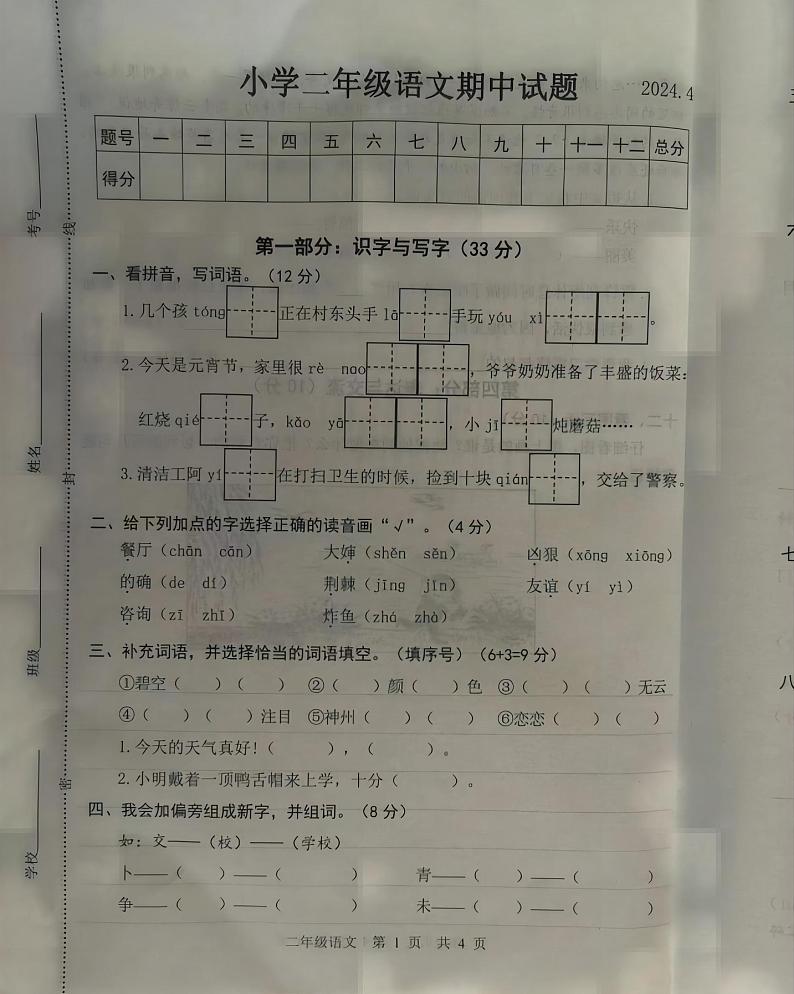 小学二年级语文期中试题 2024.4
题号 一 二 三 四 五 六 七 八 九 十 十一 十二 总分
得分
第一部分：识字与写字（33分）
一、看拼音，写词语。（12分）
1.几个孩tóng 正在村东头手lā 手玩yóu xì 。
2.今天是元宵节，家里很rè nao ，爷爷奶奶准备了丰盛的饭菜：
红烧qié 子，kǎo yā ，小jī 炖蘑菇……
3.清洁工阿yí 在打扫卫生的时候，捡到十块qián ，交给了警察。
二、给下列加点的字选择正确的读音画“√”。（4分）
餐厅（chān cān） 大婶（shěn sěn） 凶狠（xōng xiōng）
的确（de dí） 荆棘（jīng jīn） 友谊（yí yì）
咨询（zī zhī） 炸鱼（zhá zhà）
三、补充词语，并选择恰当的词语填空。（填序号）（6+3=9分）
①碧空（ ）（ ） ②（ ）颜（ ）色 ③（ ）（ ）无云
④（ ）（ ）注目 ⑤神州（ ）（ ） ⑥恋恋（ ）（ ）
1.今天的天气真好！（ ），（ ）。
2.小明戴着一顶鸭舌帽来上学，十分（ ）。
四、我会加偏旁组成新字，并组词。（8分）
如：交——（校）——（学校）
卜——（ ）——（ ） 青——（ ）——（ ）
争——（ ）——（ ） 未——（ ）——（ ）
二年级语文 第 1 页 共 4 页
考号
姓名
班级
学校
线
封
密